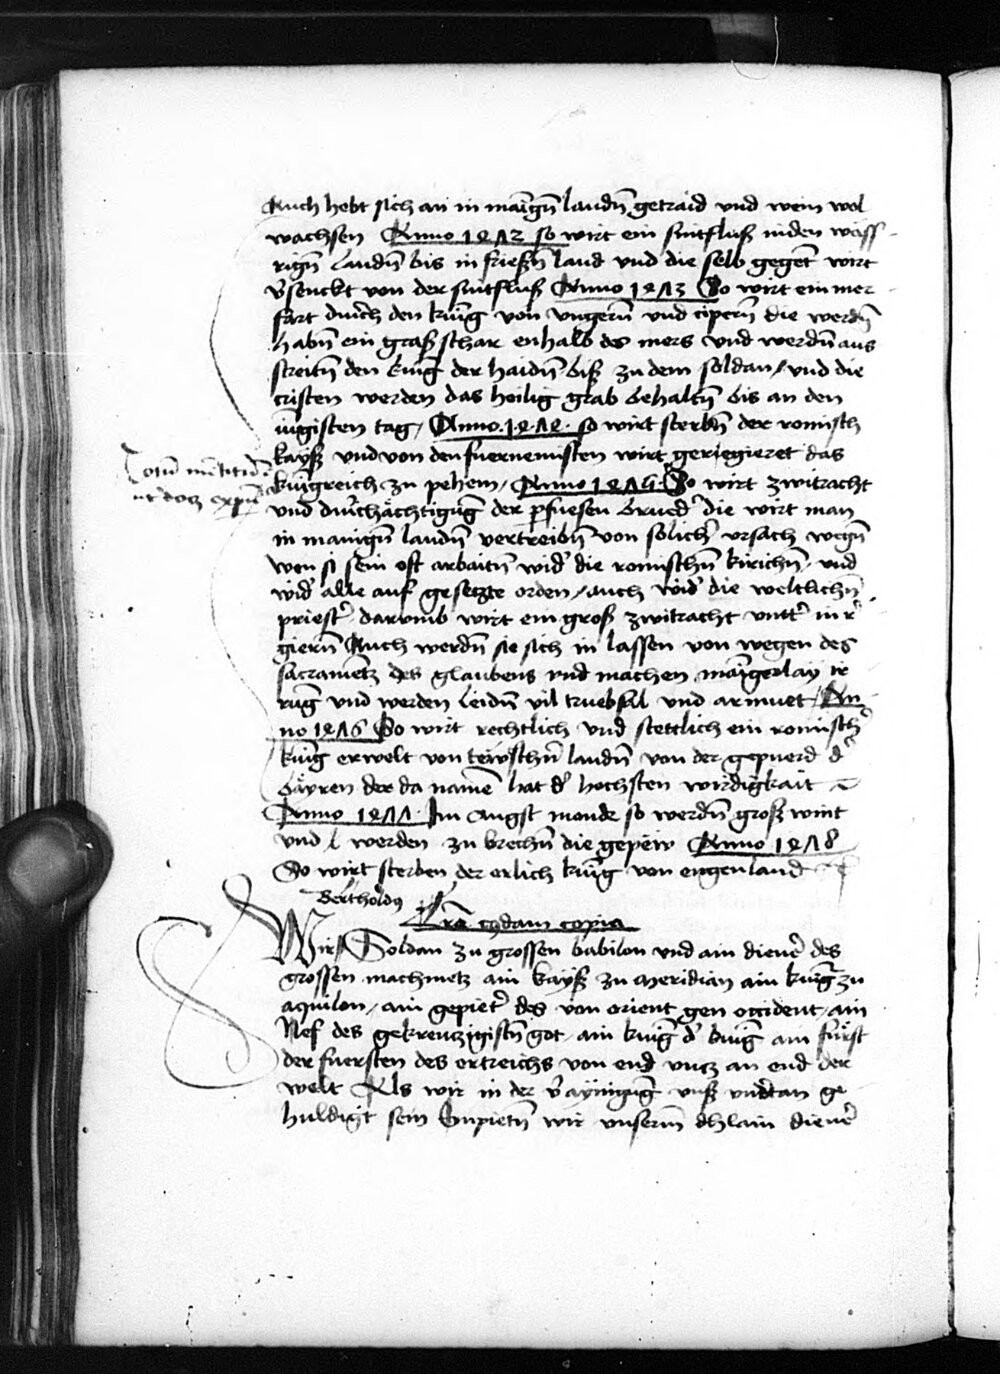 Auch hebt sich an in manign landn getraid und wein wol
wachsen Anno 1472 so wirt ein sintfluß in den wass-
rign Landn bis in frießn land und die selb geget wirt
vsenckt von der sintfluß Anno 1473 So wirt ein mer-
fart durch den kunig von ungern und cipern die werdn
habn ein graß schar enhalb des mers und werdn aus
streitn den kunig der haidn biß zu dem soldan / und die
cristen werden das heilig grab behaltn bis an den
iungisten tag / Anno 1474 so wirt sterbn der romisch
kayß und von den fuernemisten wirt geregieret das
kunigreich zu pehem / Anno 1475 So wirt zwitracht
und durchächtigung der pfuesen brued die wirt man
in manign landn vertreibn von solich ursach wegn
wen si sein oft arbaitn wid die romischn kirichn und
wid alle auf gesetzte orden / auch wid die weltlichn
priest darumb wirt ein groß zwitracht untt in r
giern Auch werdn sie sich in lassen von wegen des
sacrametz des glaubens und machen manigerlay ir
rung und werden leidn vil truebsal und armuet / An-
no 1476 So wirt rechtlich und stettlich ein romisch
kunig erwelt von tewtschn landn von der gepuerd d
bäyren der da namen hat d hochsten wirdigkait
Anno 1477 Im augst monde so werdn groß wint
und werden zu brechn die gepew Anno 1478
So wirt sterben der erlich kunig von engenland
Bertholdus
copia
Wir Soldan zu grossen babilon und ain diener des
grossen machmetz ain kayß zu meridian ain kunig zu
aquilon / ain gepiet des von orient gen occident / ain
Nef des gekreuzigistn got / ain kunig d kunig ain fürst
der fuersten des ertreichs von end untz an end der
welt Als wir in der vaynigung unß undtan ge-
huldigt sein Enpietn wir unserm diener